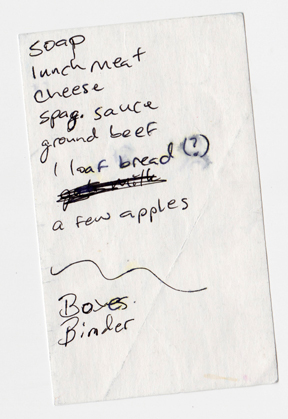 soap
lunch meat
cheese
spag. sauce
ground beef
1 loaf bread (?)
a few apples
Boxes
Binder